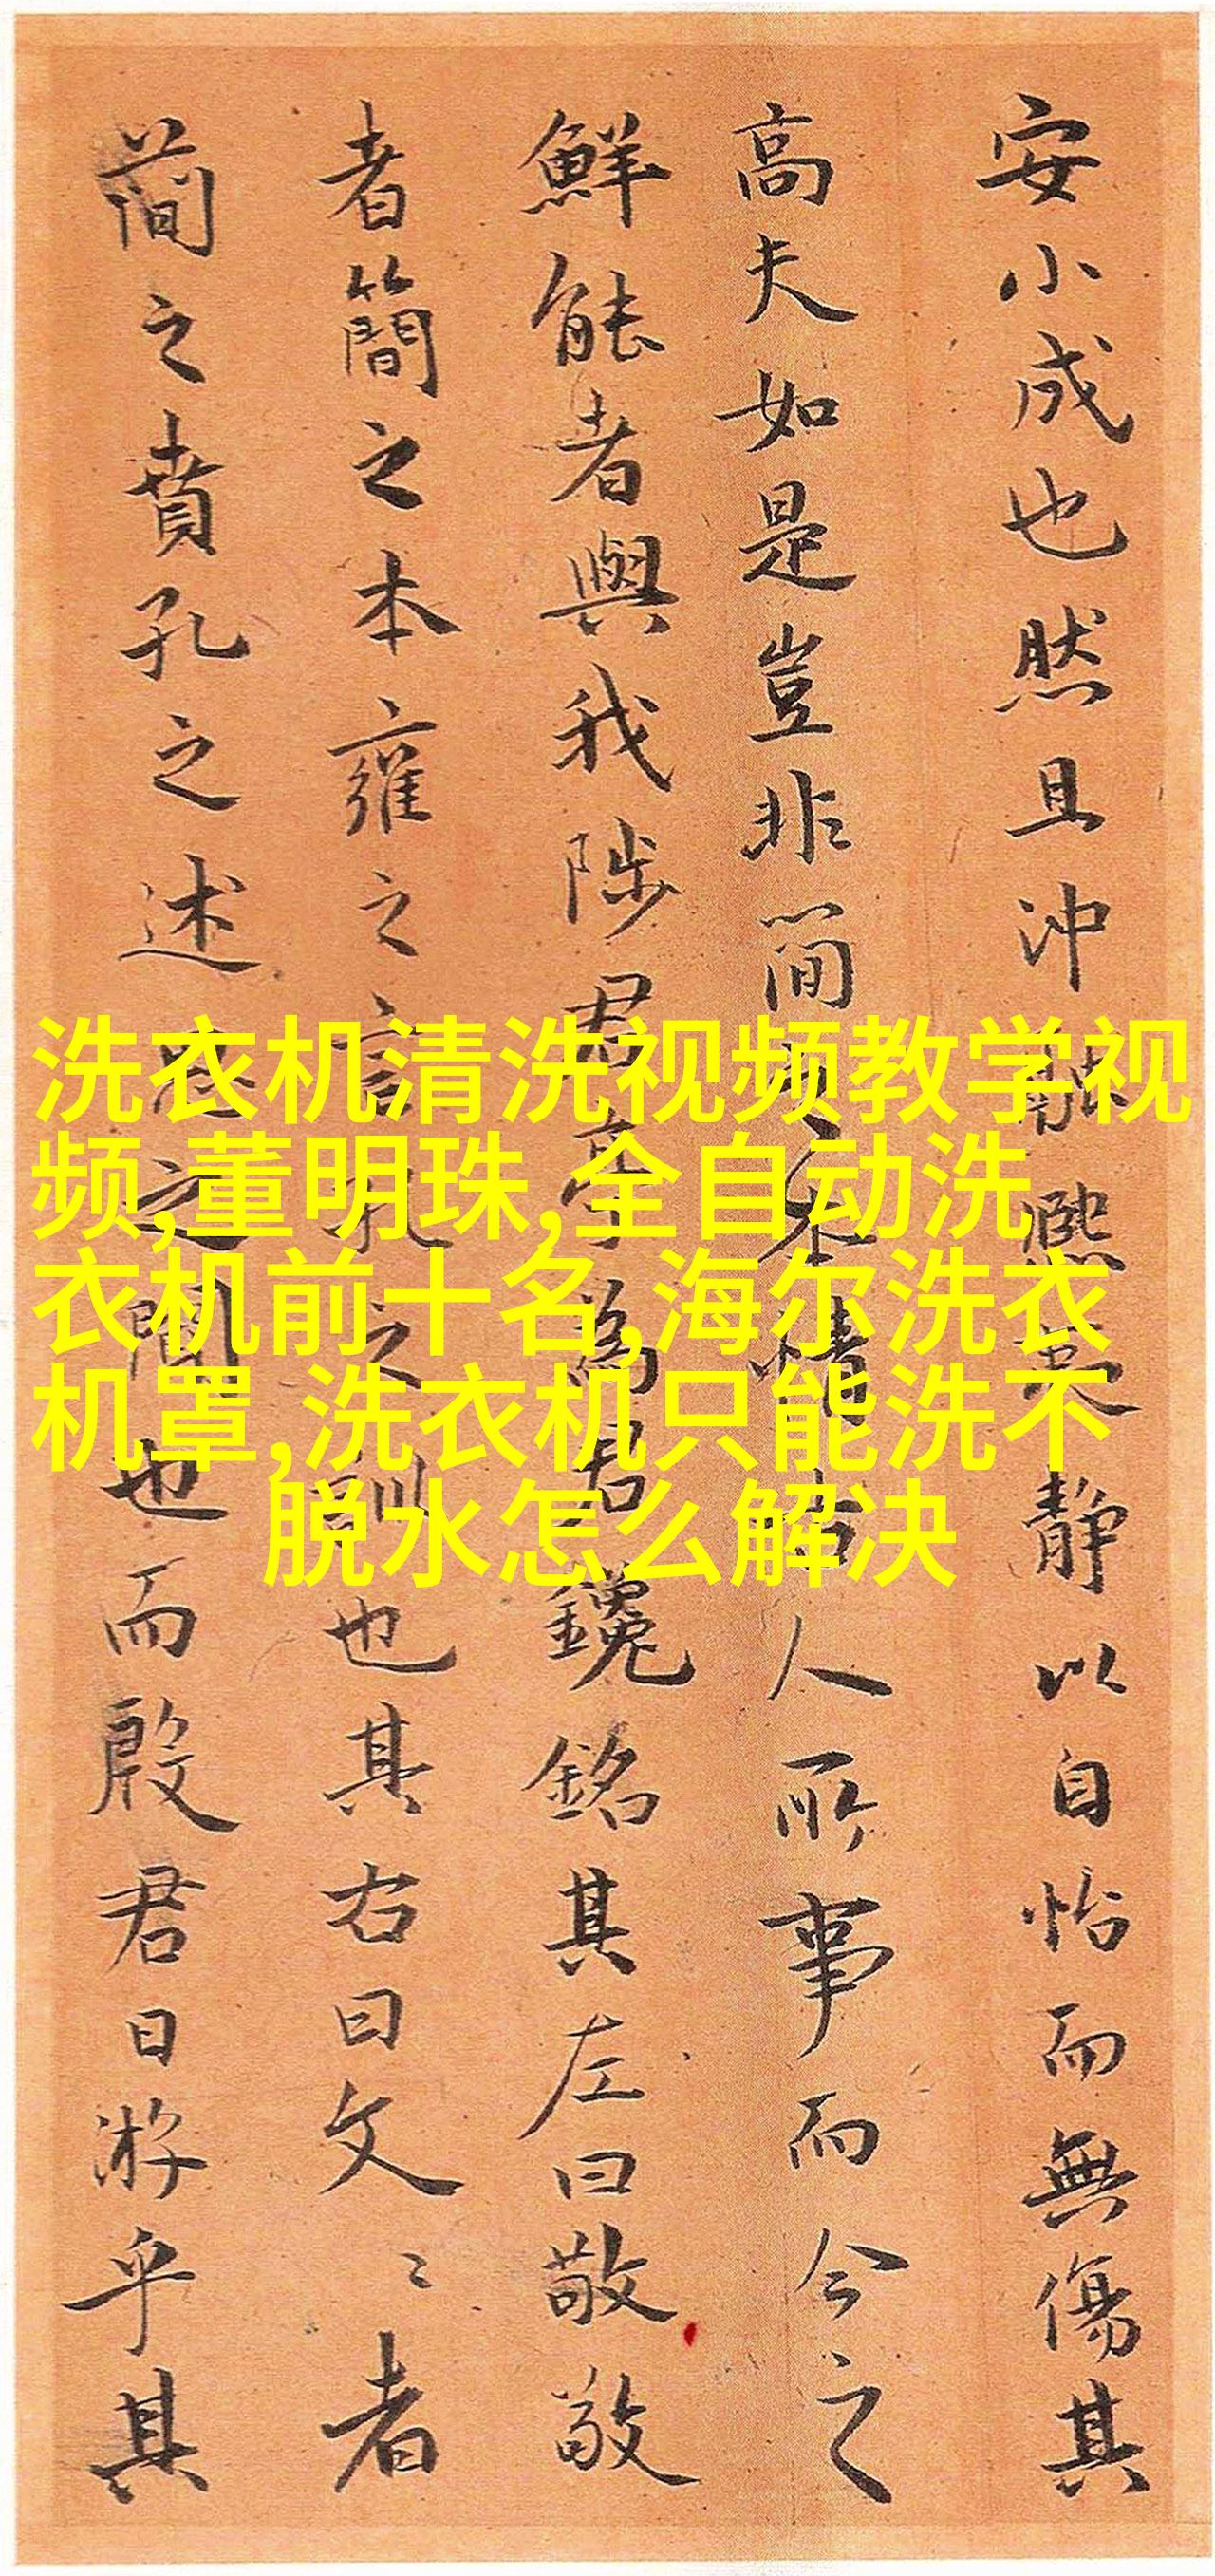 安小成也然且沖融熙夷静以自怡而無傷其
高夫如是豈非簡人所事而今之
鮮能者與我陟君亭為君鑱銘其左曰敬敬
者簡之本雍之言孔之訓也其右曰文〻者
簡之賁孔之述也而殷君日游乎其
洗衣机清洗视频教学视
频,董明珠,全自动洗
衣机前十名,海尔洗衣
机罩,洗衣机只能洗不
脱水怎么解决